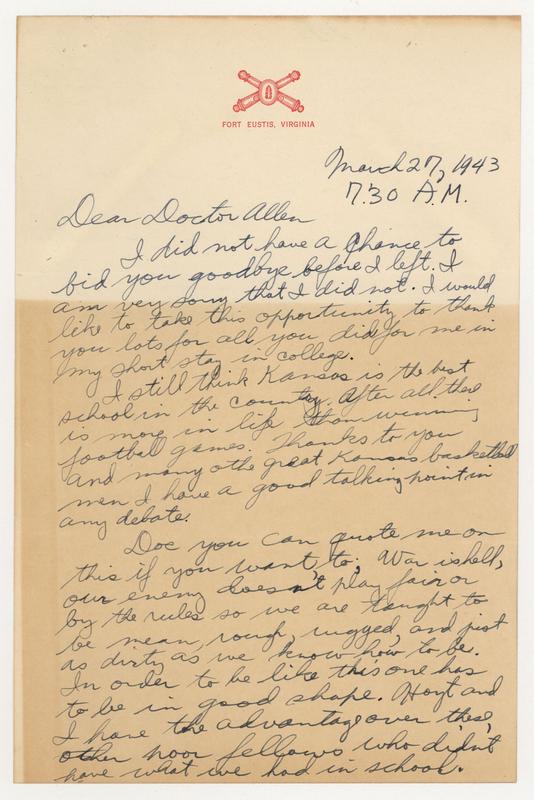 FORT EUSTIS, VIRGINIA
March 27, 1943
7:30 A.M.
Dear Doctor Allen
I did not have a chance to
bid you goodbye before I left. I
am very sorry that I did not. I would
like to take this opportunity to thank
you lots for all you did for me in
my short stay in college.
I still think Kansas is the best
school in the country. After all there
is more in life than winning
football games. Thanks to you
and many othe great Kansas basketball
men I have a good talking point in
any debate.
Doc you can quote me on
this if you want to; War is hell,
our enemy doesn't play fair or
by the rules so we are taught to
be mean, rough, rugged, and just
as dirty as we know how to be.
In order to be like this one has
to be in good shape. Hoyt and
I have the advantage over these
other poor fellows who didn't
have what we had in school.